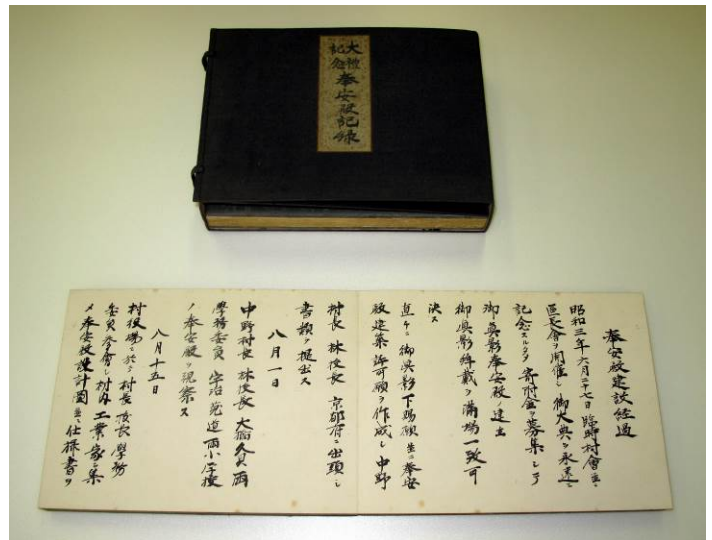 大禮
記念
奉安殿記録
奉安殿建設経過
昭和三年六月二十七日 臨時村會並ニ
區長會ヲ開催シ御大典ヲ永遠ニ
記念スルタメ寄附金ヲ募集シテ
御真影奉安殿ノ建立
御真影奉戴ヲ満場一致可
決ス
直チニ御真影下賜願並ニ奉安
殿建築許可願ヲ作成シ中野
村長 林校長 京都府ニ出頭シ
書類ヲ提出ス
八月一日
中野村長 林校長 大 久 両
學務委員 宇治 莵道両小学校
ノ奉安殿ヲ視察ス
八月十五日
村役場ニ於テ村長 校長 學務
委員参會シ村内工業家ヲ集
メ奉安殿設計圖並ニ仕様書ヲ